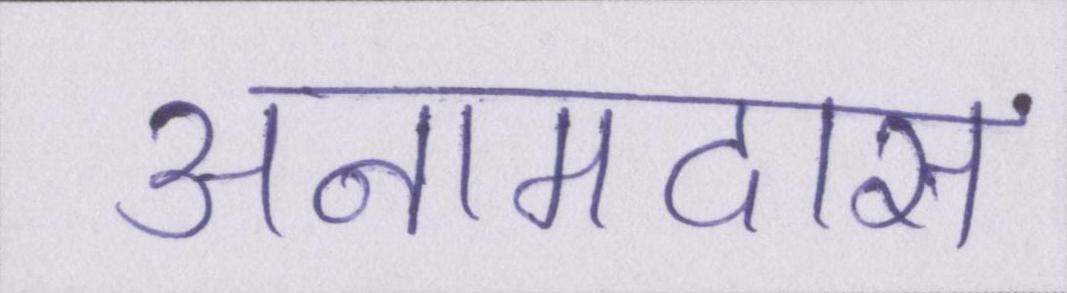 अनामदासं